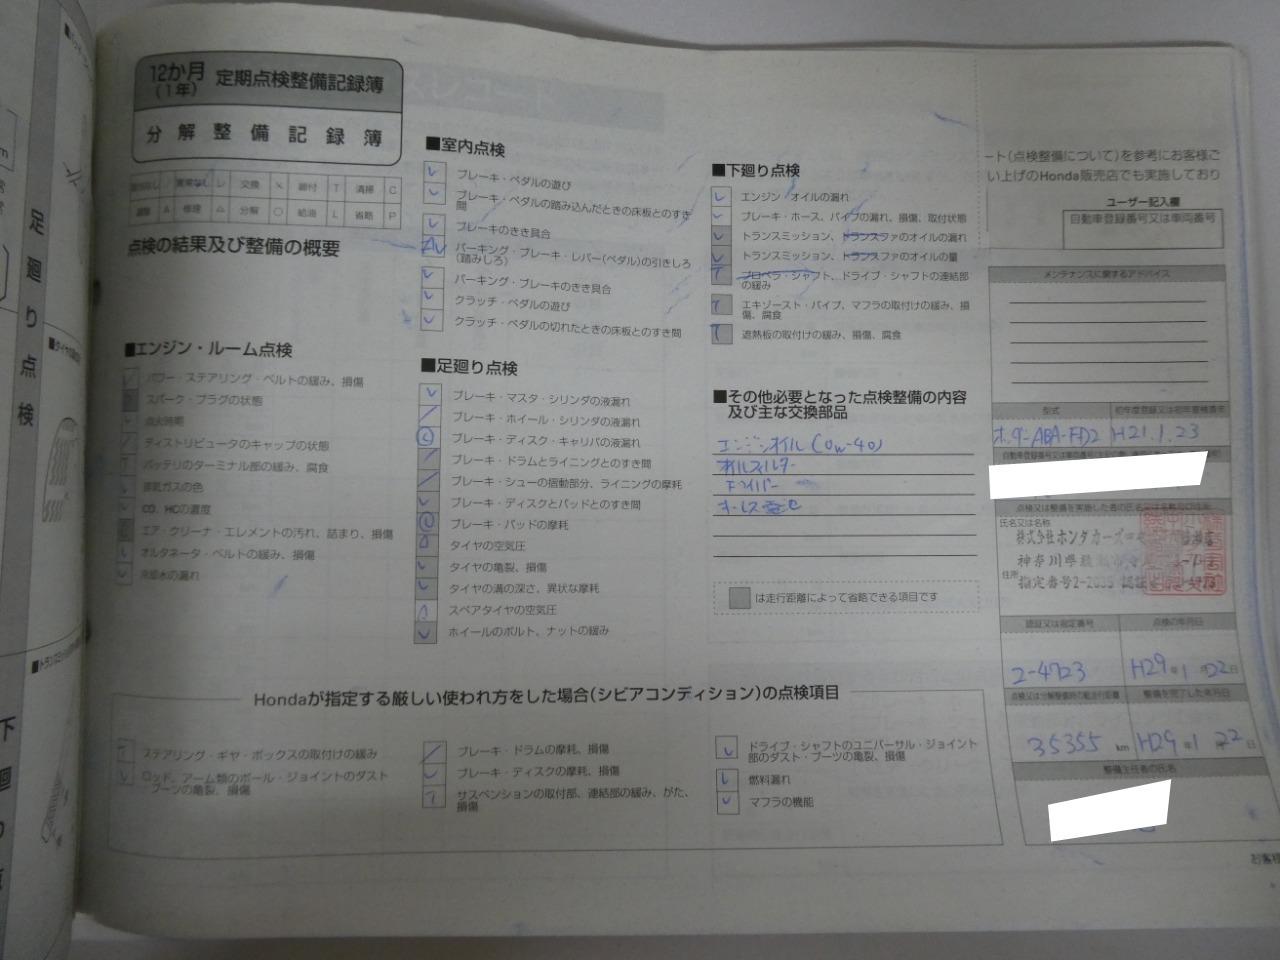 12か月
(1年)
定期点検整備記録簿
分解整備記録簿
該当なし / 異常なし レ 交換 × 締付 T 清掃 C
調整 A 修理 △ 分解 ○ 給油 L 省略 P
点検の結果及び整備の概要
■エンジン・ルーム点検
パワー・ステアリング・ベルトの緩み、損傷
スパーク・プラグの状態
点火時期
ディストリビュータのキャップの状態
バッテリのターミナル部の緩み、腐食
排気ガスの色
CO、HCの濃度
エア・クリーナ・エレメントの汚れ、詰まり、損傷
オルタネータ・ベルトの緩み、損傷
冷却水の漏れ
■室内点検
ブレーキ・ペダルの遊び
ブレーキ・ペダルの踏み込んだときの床板とのすき
間
ブレーキのきき具合
パーキング・ブレーキ・レバー(ペダル)の引きしろ
(踏みしろ)
パーキング・ブレーキのきき具合
クラッチ・ペダルの遊び
クラッチ・ペダルの切れたときの床板とのすき間
■足廻り点検
ブレーキ・マスタ・シリンダの液漏れ
ブレーキ・ホイール・シリンダの液漏れ
ブレーキ・ディスク・キャリパの液漏れ
ブレーキ・ドラムとライニングとのすき間
ブレーキ・シューの摺動部分、ライニングの摩耗
ブレーキ・ディスクとパッドとのすき間
ブレーキ・パッドの摩耗
タイヤの空気圧
タイヤの亀裂、損傷
タイヤの溝の深さ、異状な摩耗
スペアタイヤの空気圧
ホイールのボルト、ナットの緩み
■下廻り点検
エンジン・オイルの漏れ
ブレーキ・ホース、パイプの漏れ、損傷、取付状態
トランスミッション、トランスファのオイルの漏れ
トランスミッション、トランスファのオイルの量
プロペラ・シャフト、ドライブ・シャフトの連結部
の緩み
エキゾースト・パイプ、マフラの取付けの緩み、損
傷、腐食
遮熱板の取付けの緩み、損傷、腐食
■その他必要となった点検整備の内容
及び主な交換部品
エンジンオイル (0W-40)
オイルフィルター
ワイパー
キーレス電池
は走行距離によって省略できる項目です
Hondaが指定する厳しい使われ方をした場合(シビアコンディション)の点検項目
ステアリング・ギヤ・ボックスの取付けの緩み
ロッド、アーム類のボール・ジョイントのダスト
ブーツの亀裂、損傷
ブレーキ・ドラムの摩耗、損傷
ブレーキ・ディスクの摩耗、損傷
サスペンションの取付部、連結部の緩み、がた、
損傷
ドライブ・シャフトのユニバーサル・ジョイント
部のダスト・ブーツの亀裂、損傷
燃料漏れ
マフラの機能
ート(点検整備について)を参考にお客様ご
い上げのHonda販売店でも実施しており
ユーザー記入欄
自動車登録番号又は車両番号
メンテナンスに関するアドバイス
型式 初年度登録又は初年度検査年
ホンダ-ABA-FD2 H21.1.23
自動車登録番号又は車両番号
点検又は整備を実施した者の氏名又は名称及び住所
氏名又は名称
株式会社ホンダカーズ
住所
神奈川県
指定番号2-2035
認証又は指定番号 点検の年月日
2-4723 H29年1月22日
点検又は分解整備時の総走行距離 整備を完了した年月日
35355 km H29年1月22日
整備主任者の氏名
お客様
足廻り点検